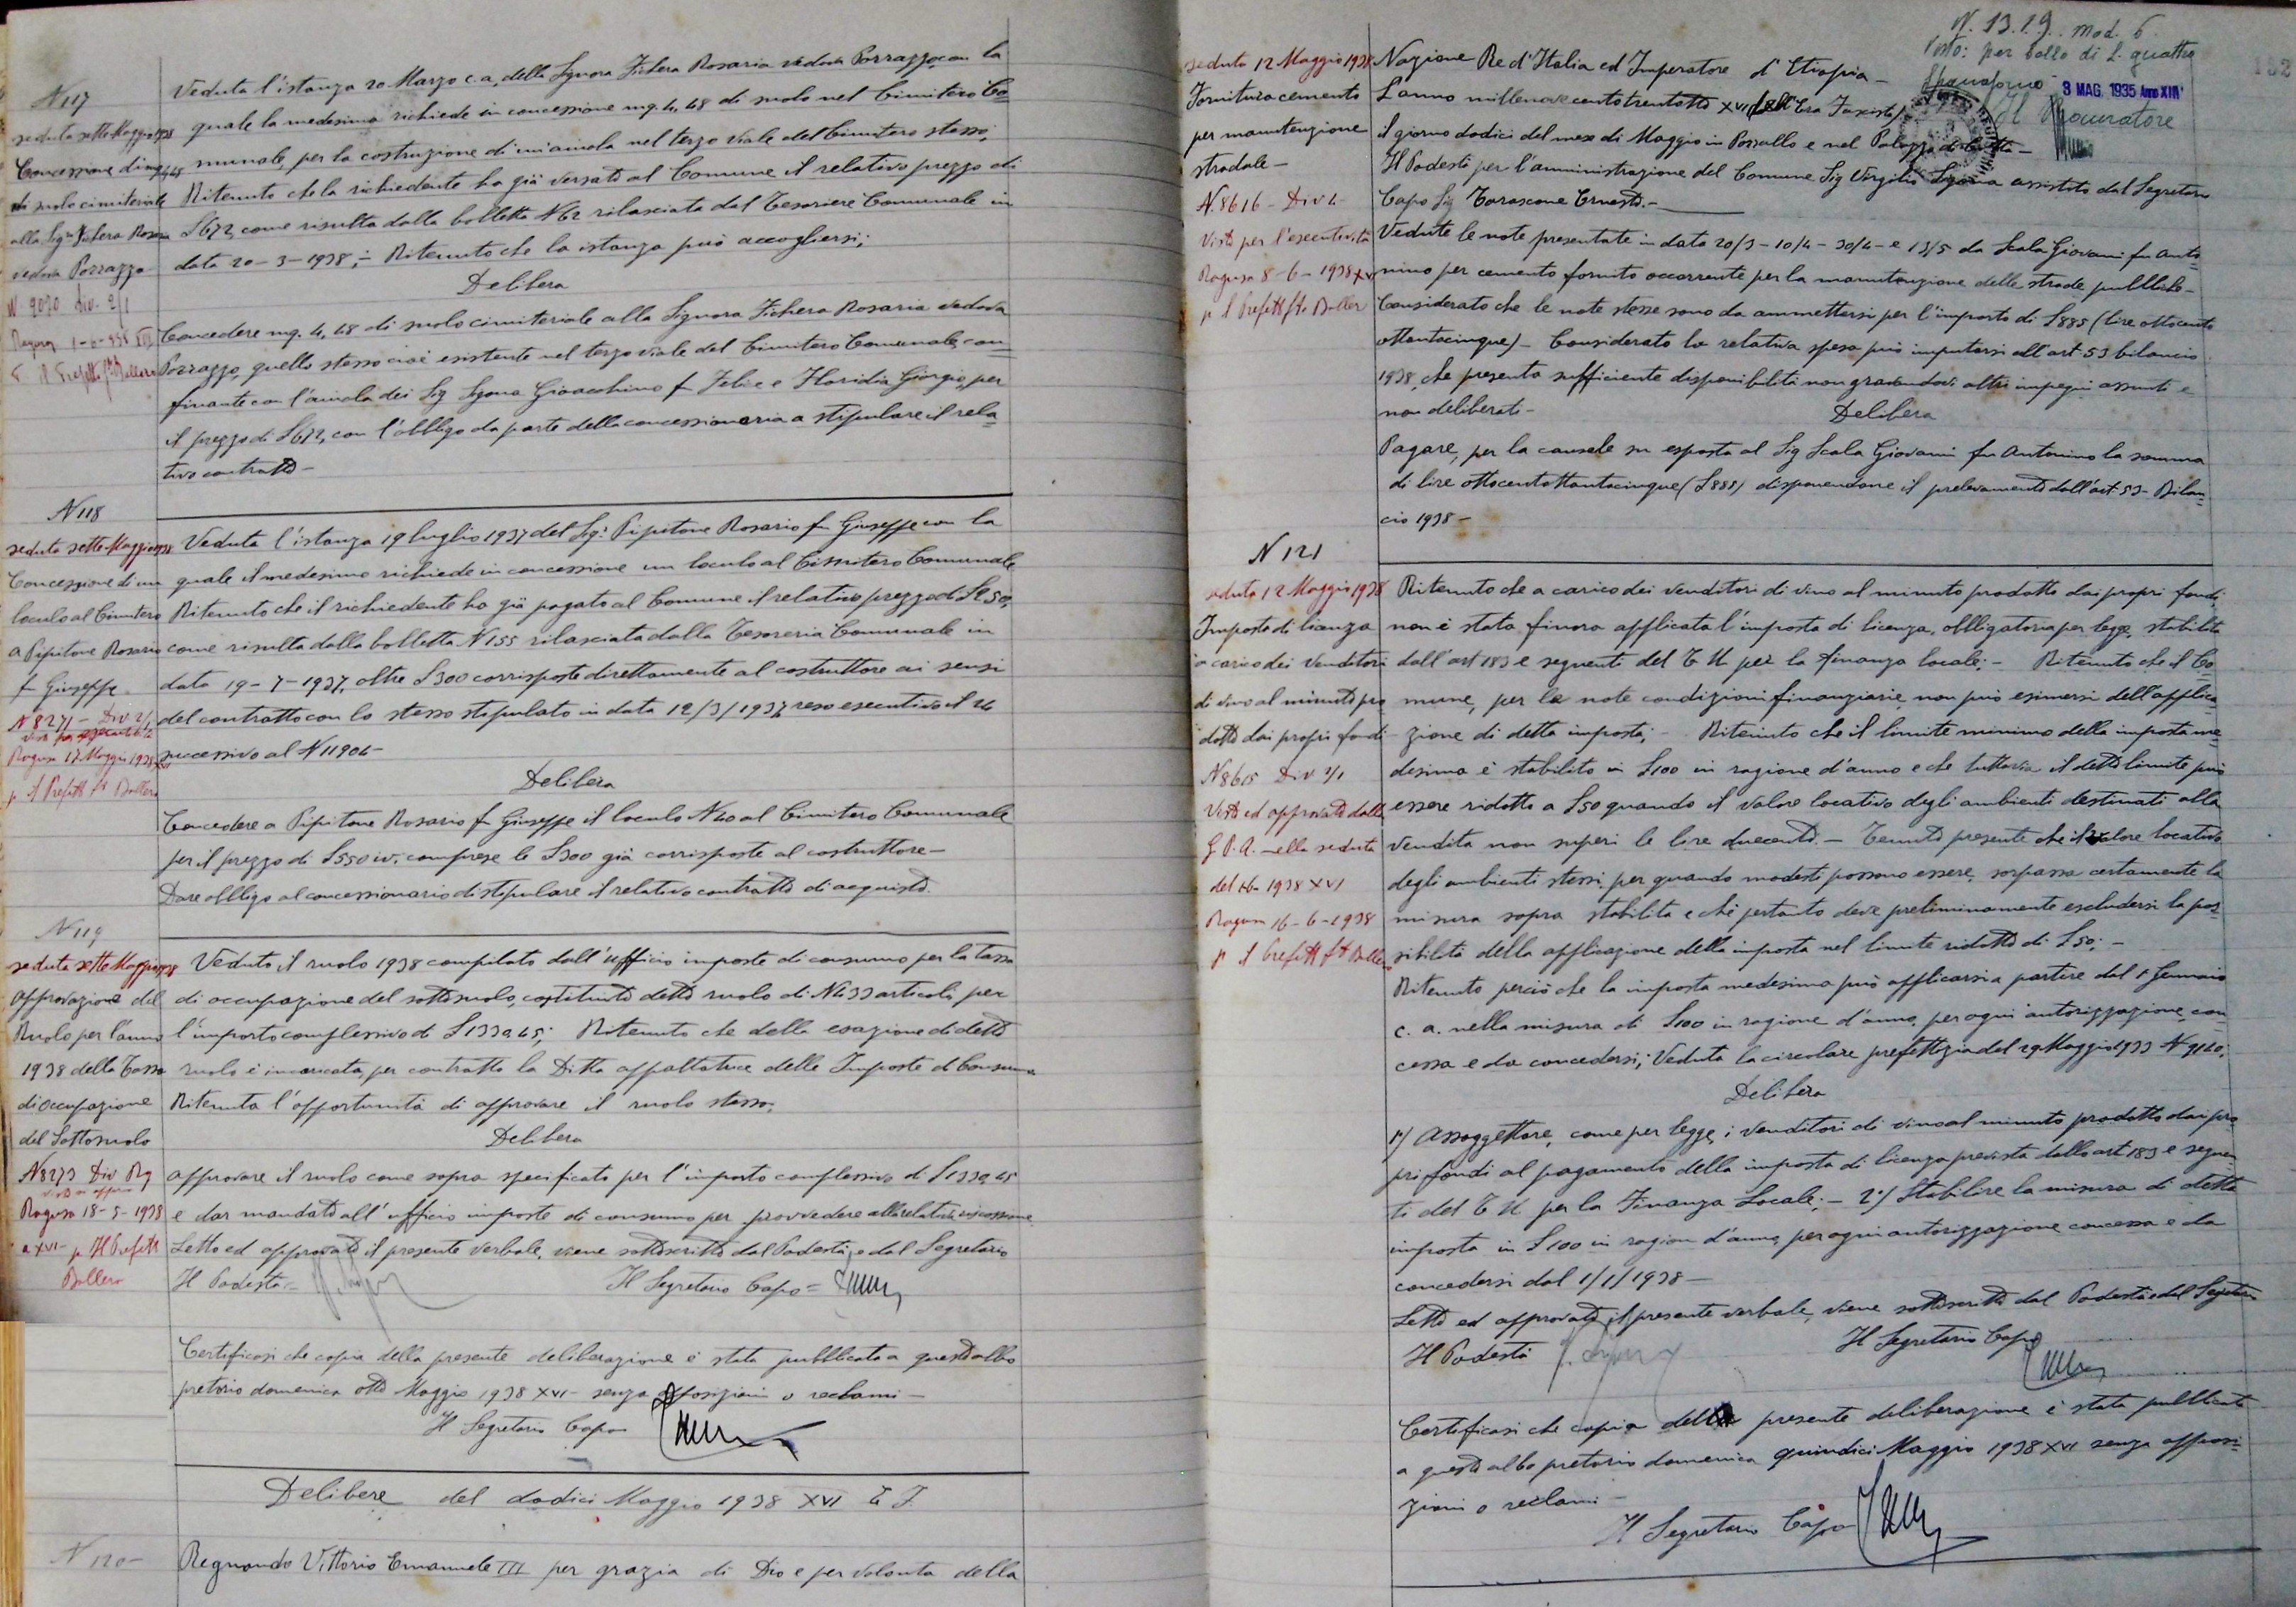 N 117
seduta sette Maggio 1938
Concessione di mq 4,48
di suolo cimiteriale
alla Sig.ra Fichera Rosaria
vedova Porrazzo
N 9070 Div. 2/1
Veduta l'istanza 20 Marzo c.a. della Signora Fichera Rosaria vedova Porrazzo, con la
quale la medesima richiede in concessione mq. 4,48 di suolo nel Cimitero Co=
munale, per la costruzione di un'aiuola nel terzo viale del Cimitero stesso;
Ritenuto che la richiedente ha già versato al Comune il relativo prezzo di
£672, come risulta dalla bolletta N 62 rilasciata dal Tesoriere Comunale in
data 20-3-1938; - Ritenuto che la istanza può accogliersi;
Delibera
Concedere mq. 4,48 di suolo cimiteriale alla Signora Fichera Rosaria vedova
Porrazzo, quello stesso cioè esistente nel terzo viale del Cimitero Comunale, con=
finante con l'aiuola dei Sig Sigona Gioacchino f Felice e Floridia Giorgio, per
il prezzo di £672, con l'obbligo da parte della concessionaria a stipulare il rela=
tivo contratto -
N 118
seduta sette Maggio 1938
Concessione di un
loculo al Cimitero
a Pipitone Rosario
f Giuseppe
N 8271 - Div 2/1
Visto per esecutività
Ragusa 17 Maggio 1938 XVI
p il Prefetto fto Ballero
Veduta l'istanza 19 luglio 1937 del Sig. Pipitone Rosario fu Giuseppe con la
quale il medesimo richiede in concessione un loculo al Cimitero Comunale
Ritenuto che il richiedente ha già pagato al Comune il relativo prezzo di £250,
come risulta dalla bolletta N 155 rilasciata dalla Tesoreria Comunale in
data 19-7-1937, oltre £300 corrisposte direttamente al costruttore ai sensi
del contratto con lo stesso stipulato in data 12/3/1937, reso esecutivo il 24
successivo al N 11904 -
Delibera
Concedere a Pipitone Rosario f Giuseppe il loculo N 40 al Cimitero Comunale
per il prezzo di £550 ivi comprese le £300 già corrisposte al costruttore -
Dare obbligo al concessionario di stipulare il relativo contratto di acquisto.
N 119
seduta sette Maggio 1938
Approvazione del
Ruolo per l'anno
1938 della Tassa
di occupazione
del Sottosuolo
N 8273 Div Rg
Ragusa 18-5-1938
a XVI - p Il Prefetto
Ballero
Veduto il ruolo 1938 compilato dall'ufficio imposte di consumo per la tassa
di occupazione del sottosuolo, costituito detto ruolo di N 433 articoli, per
l'importo complessivo di £1339,45; Ritenuto che della esazione di detto
ruolo è incaricata, per contratto la Ditta appaltatrice delle Imposte di Consumo
Ritenuta l'opportunità di approvare il ruolo stesso;
Delibera
Approvare il ruolo come sopra specificato per l'importo complessivo di £1339,45
e dar mandato all'ufficio imposte di consumo per provvedere alla relativa riscossione.
Letto ed approvato il presente verbale, viene sottoscritto dal Podestà, e dal Segretario
Il Podestà = Il Segretario Capo =
Certificasi che copia della presente deliberazione è stata pubblicata a questo albo
pretorio domenica otto Maggio 1938 XVI - senza opposizioni o reclami -
Il Segretario Capo
Delibere del dodici Maggio 1938 XVI E F.
N 120 -
Regnando Vittorio Emanuele III per grazia di Dio e per volontà della
N. 13.19. mod. 6
Visto: per bollo di L. quattro
Spaccaforno 3 MAG. 1935 Anno XIII
Il Procuratore
seduta 12 Maggio 1938
Fornitura cemento
per manutenzione
stradale -
N. 8616 - Div 4 -
Visto per l'esecutività
Ragusa 8-6-1938 XVI
p il Prefetto fto Ballero
Nazione Re d'Italia ed Imperatore d'Etiopia -
L'anno millenovecentotrentotto XVI dell'Era Fascista,
il giorno dodici del mese di Maggio in Pozzallo e nel Palazzo di Città -
Il Podestà per l'amministrazione del Comune Sig Virgilio Sigona assistito dal Segretario
Capo Sig Tarascone Ernesto. -
Vedute le note presentate in data 20/3 - 10/4 - 30/4 - e 13/5 da Scala Giovanni fu Anto=
nino per cemento fornito occorrente per la manutenzione delle strade pubbliche -
Considerato che le note stesse sono da ammettersi per l'importo di £885 (lire ottocento
ottantacinque) - Considerato la relativa spesa può imputarsi all'art 53 bilancio
1938, che presenta sufficiente disponibilità non gravandovi altri impegni assunti e
non deliberati -
Delibera
Pagare, per la causale su esposta al Sig Scala Giovanni fu Antonino la somma
di lire ottocentottantacinque (£885) disponendone il prelevamento dall'art 53 - Bilan=
cio 1938 -
N 121
seduta 12 Maggio 1938
Imposta di licenza
a carico dei venditori
di vino al minuto pro
dotto dai propri fondi
N 8615 Div 2/1
Visto ed approvato dalla
G.P.A. nella seduta
del 14-6-1938 XVI
Ragusa 16-6-1938
p il Prefetto fto Ballero
Ritenuto che a carico dei venditori di vino al minuto prodotto dai propri fondi,
non è stata finora applicata l'imposta di licenza, obbligatoria per legge, stabilita
dall'art 183 e seguenti del T U per la finanza locale; - Ritenuto che il Co
mune, per le note condizioni finanziarie, non può esimersi dell'applica
zione di detta imposta; - Ritenuto che il limite minimo della imposta me=
desima è stabilito in £100 in ragione d'anno e che tuttavia il detto limite può
essere ridotto a £50 quando il valore locativo degli ambienti destinati alla
vendita non superi le lire duecento. - Tenuto presente che il valore locativo
degli ambienti stessi, per quando modesti possono essere, sorpassa certamente la
misura sopra stabilita e che pertanto deve preliminamente escludersi la pos=
sibilità della applicazione della imposta nel limite ridotto di £50; -
Ritenuto perciò che la imposta medesima può applicarsi a partire dal 1° Gennaio
c. a. nella misura di £100 in ragione d'anno, per ogni autorizzazione con
cessa e da concedersi; Veduta la circolare prefettizia del 29 Maggio 1933 N 9120;
Delibera
1°/ Assoggettare, come per legge, i venditori di vino al minuto prodotto dai pro
pri fondi al pagamento della imposta di licenza prevista dallo art 183 e seguen
ti del T U per la Finanza Locale; - 2°/ Stabilire la misura di detta
imposta in £100 in ragion d'anno, per ogni autorizzazione concessa e da
concedersi dal 1/1/1938 -
Letto ed approvato, il presente verbale, viene sottoscritto dal Podestà e dal Segretario
Il Podestà Il Segretario Capo
Certificasi che copia della presente deliberazione è stata pubblicata
a questo albo pretorio domenica quindici Maggio 1938 XVI senza opposi=
zioni o reclami -
Il Segretario Capo